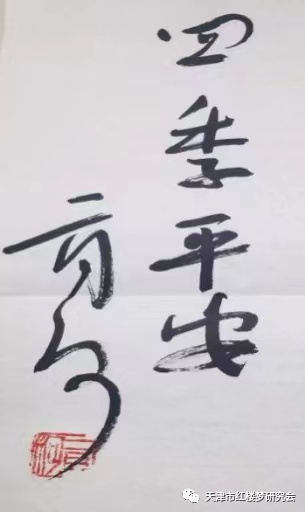 四季平安
天津市红楼梦研究会